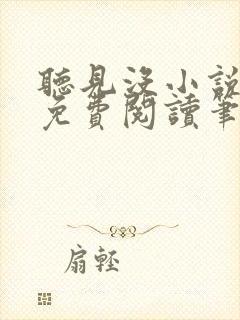 聽見沒小說
免費閱讀筆
扇輕